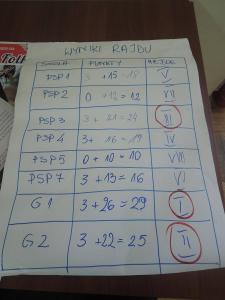 WYNIKI RAJDU
SZKOŁA PUNKTY MIEJSCE
PSP 1 3 +15=18 V
PSP 2 0 +12=12 VII
PSP 3 3 +21=24 III
PSP 4 3+ 16=19 IV
PSP 5 0 + 10=10 VIII
PSP 7 3+13=16 VI
G 1 3 +26=29 I
G 2 3 +22=25 II